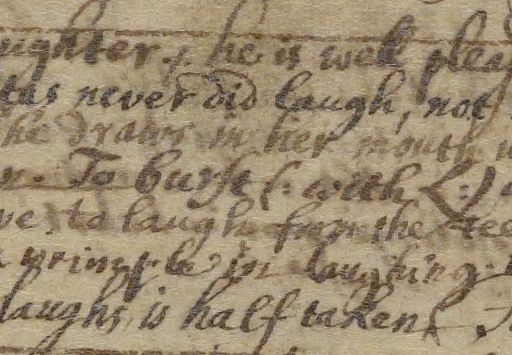 ughter. he is well pleas
tas never did laugh, not
he draws in her mouth w
n. To burst (: with (:)
ve, to laugh from the tee
wrinkle in laughing.
laughs, is half taken.